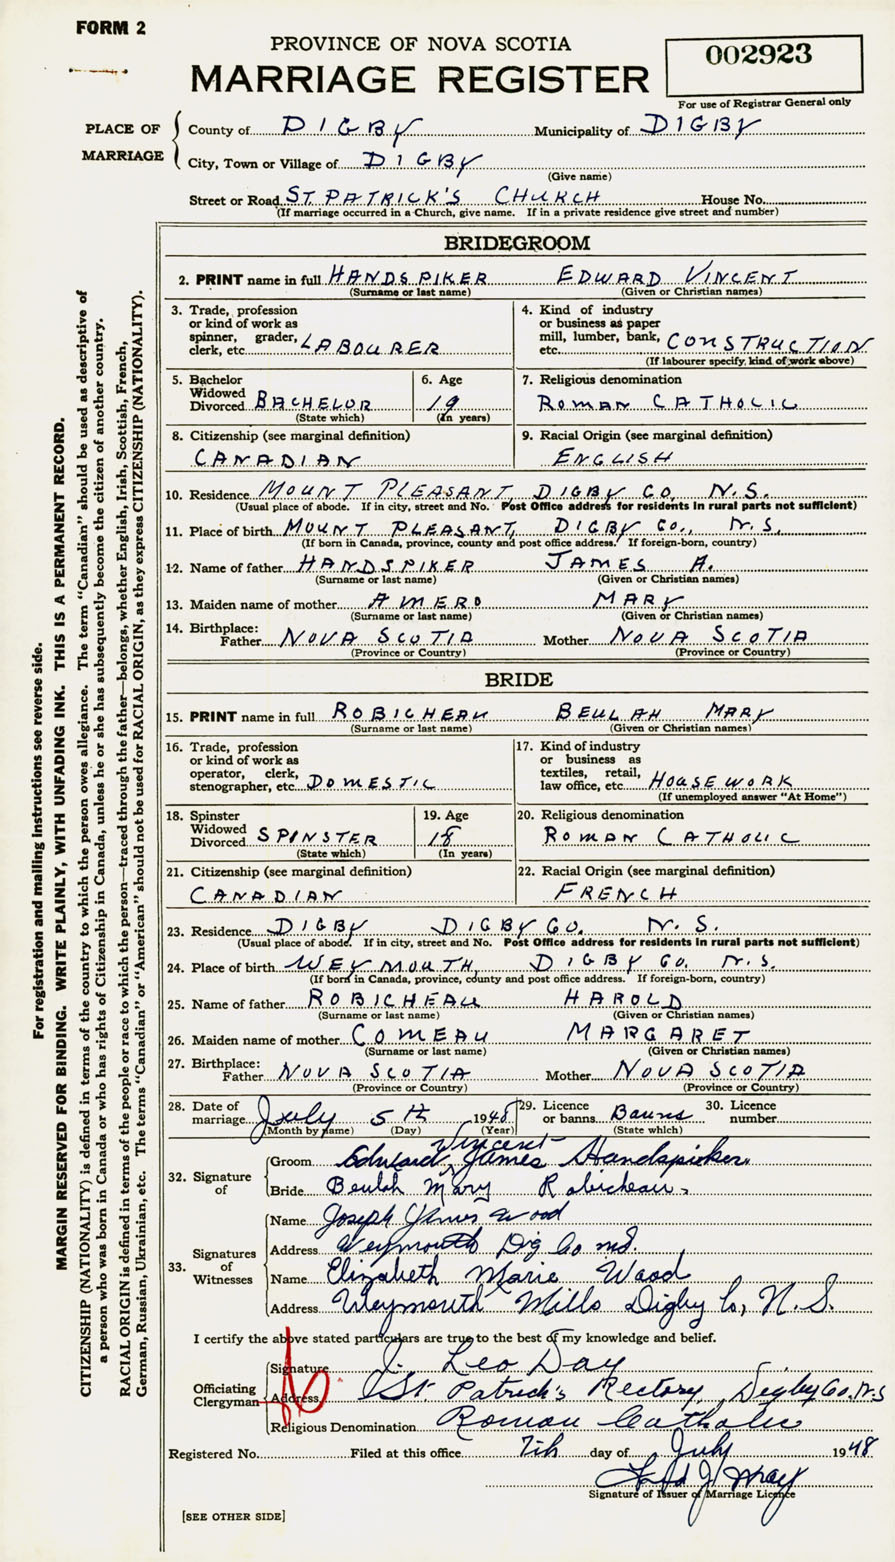 FORM 2
PROVINCE OF NOVA SCOTIA
MARRIAGE REGISTER
002923
For use of Registrar General only
PLACE OF MARRIAGE
County of DIGBY Municipality of DIGBY
City, Town or Village of DIGBY
(Give name)
Street or Road ST. PATRICK'S CHURCH House No.
(If marriage occurred in a Church, give name. If in a private residence give street and number)
BRIDEGROOM
2. PRINT name in full HANDSPIKER EDWARD VINCENT
(Surname or last name) (Given or Christian names)
3. Trade, profession or kind of work as spinner, grader, clerk, etc. LABOURER
4. Kind of industry or business as paper mill, lumber, bank, etc. CONSTRUCTION
(If labourer specify kind of work above)
5. Bachelor Widowed Divorced BACHELOR
(State which)
6. Age 19
(In years)
7. Religious denomination
ROMAN CATHOLIC
8. Citizenship (see marginal definition)
CANADIAN
9. Racial Origin (see marginal definition)
ENGLISH
10. Residence MOUNT PLEASANT, DIGBY CO. N.S.
(Usual place of abode. If in city, street and No. Post Office address for residents in rural parts not sufficient)
11. Place of birth MOUNT PLEASANT, DIGBY CO., N.S.
(If born in Canada, province, county and post office address. If foreign-born, country)
12. Name of father HANDSPIKER JAMES A.
(Surname or last name) (Given or Christian names)
13. Maiden name of mother AMERO MARY
(Surname or last name) (Given or Christian names)
14. Birthplace:
Father NOVA SCOTIA Mother NOVA SCOTIA
(Province or Country) (Province or Country)
BRIDE
15. PRINT name in full ROBICHEAU BEULAH MARY
(Surname or last name) (Given or Christian names)
16. Trade, profession or kind of work as operator, clerk, stenographer, etc. DOMESTIC
17. Kind of industry or business as textiles, retail, law office, etc. HOUSEWORK
(If unemployed answer "At Home")
18. Spinster Widowed Divorced SPINSTER
(State which)
19. Age 18
(In years)
20. Religious denomination
ROMAN CATHOLIC
21. Citizenship (see marginal definition)
CANADIAN
22. Racial Origin (see marginal definition)
FRENCH
23. Residence DIGBY DIGBY CO. N.S.
(Usual place of abode. If in city, street and No. Post Office address for residents in rural parts not sufficient)
24. Place of birth WEYMOUTH, DIGBY CO. N.S.
(If born in Canada, province, county and post office address. If foreign-born, country)
25. Name of father ROBICHEAU HAROLD
(Surname or last name) (Given or Christian names)
26. Maiden name of mother COMEAU MARGARET
(Surname or last name) (Given or Christian names)
27. Birthplace:
Father NOVA SCOTIA Mother NOVA SCOTIA
(Province or Country) (Province or Country)
28. Date of marriage July 5th 1948
(Month by name) (Day) (Year)
29. Licence or banns Banns
(State which)
30. Licence number
32. Signature of
Vincent
Groom Edward James Handspicker
Bride Beulah Mary Robicheau.
33. Signatures of Witnesses
Name Joseph James Wood
Address Weymouth Dig Co
Name Elizabeth Marie Wood
Address Weymouth Mills Digby Co, N.S.
I certify the above stated particulars are true to the best of my knowledge and belief.
Officiating Clergyman
Signature J. Leo Day
Address St. Patrick's Rectory, Digby Co. N.S
Religious Denomination Roman Catholic
Registered No. Filed at this office 7th day of July 1948
Signature of Issuer of Marriage Licence
[SEE OTHER SIDE]
For registration and mailing instructions see reverse side.
MARGIN RESERVED FOR BINDING. WRITE PLAINLY, WITH UNFADING INK. THIS IS A PERMANENT RECORD.
CITIZENSHIP (NATIONALITY) is defined in terms of the country to which the person owes allegiance. The term "Canadian" should be used as descriptive of
a person who was born in Canada or who has rights of Citizenship in Canada, unless he or she has subsequently become the citizen of another country.
RACIAL ORIGIN is defined in terms of the people or race to which the person—traced through the father—belongs, whether English, Irish, Scottish, French,
German, Russian, Ukrainian, etc. The terms "Canadian" or "American" should not be used for RACIAL ORIGIN, as they express CITIZENSHIP (NATIONALITY).